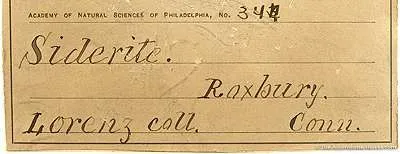 ACADEMY OF NATURAL SCIENCES OF PHILADELPHIA, NO.
Siderite.
Roxbury.
Lorenz coll. Conn.